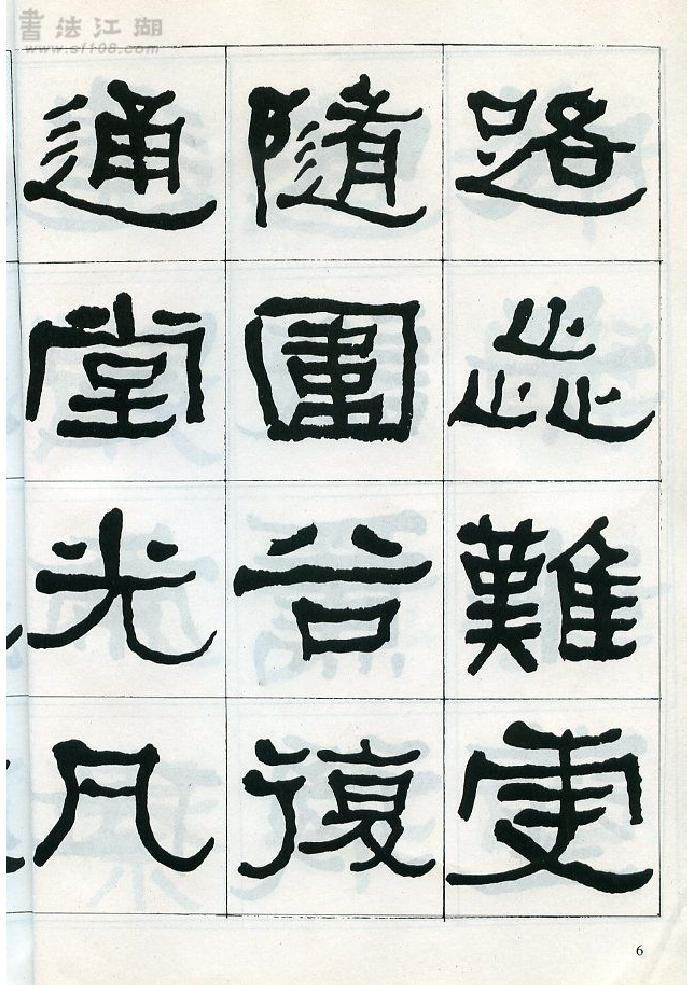 書法江湖
www.sf108.com
路歮難更
隨圍谷復
通堂光凡
6